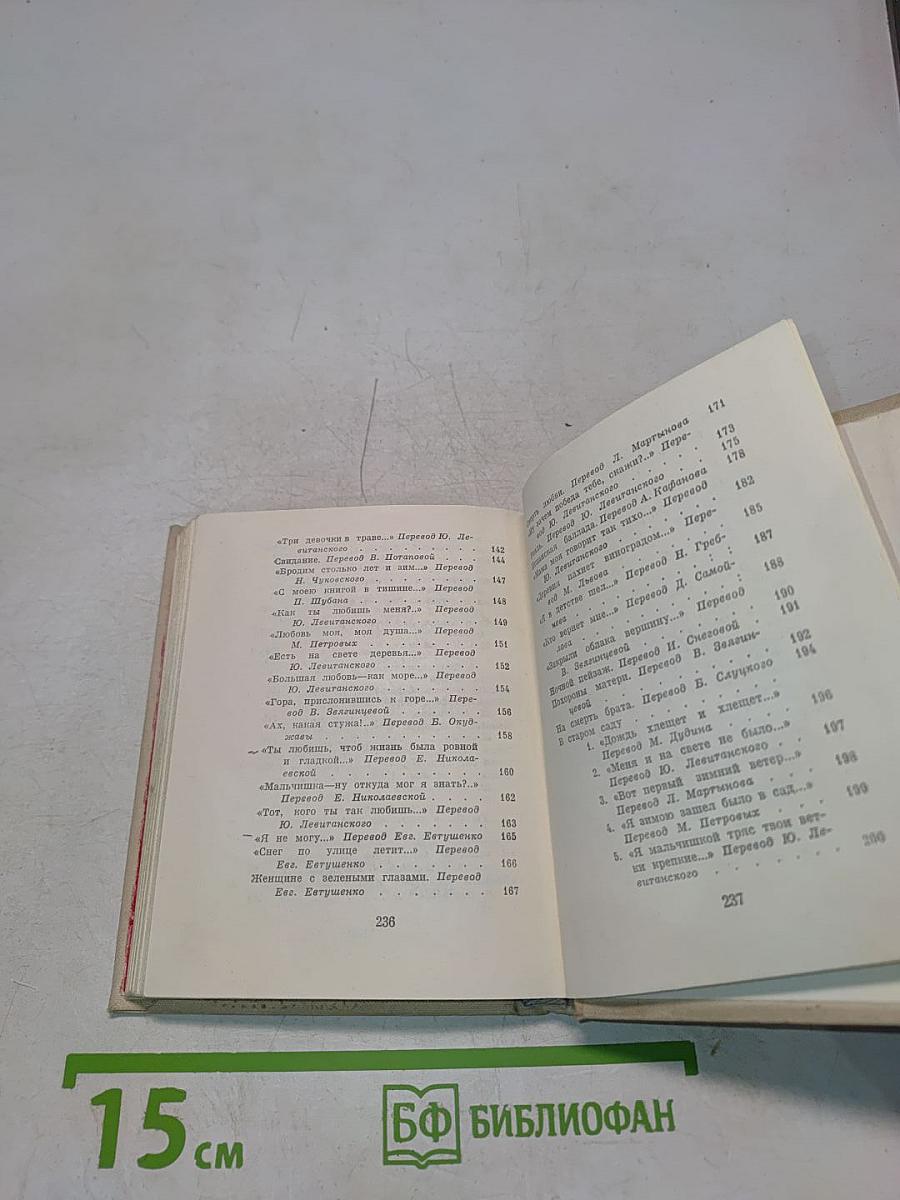 «Три девочки в траве...» Перевод Ю. Ле-
витанского . . . . . . . . 142
Свидание. Перевод В. Потаповой . . . 144
«Бродим столько лет и зим...» Перевод
Н. Чуковского . . . . . . . 147
«С моею книгой в тишине...» Перевод
П. Шубина . . . . . . . . 148
«Как ты любишь меня?..» Перевод
Ю. Левитанского . . . . . . 149
«Любовь моя, моя душа...» Перевод
М. Петровых . . . . . . . 151
«Есть на свете деревья...» Перевод
Ю. Левитанского . . . . . . 152
«Большая любовь—как море...» Перевод
Ю. Левитанского . . . . . . 154
«Гора, прислонившись к горе...» Пере-
вод В. Звягинцевой . . . . . 156
«Ах, какая стужа!..» Перевод Б. Окуд-
жавы . . . . . . . . . 158
«Ты любишь, чтоб жизнь была ровной
и гладкой...» Перевод Е. Никола-
евской . . . . . . . . . 160
«Мальчишка—ну откуда мог я знать?..»
Перевод Е. Николаевской . . . . 162
«Тот, кого ты так любишь...» Перевод
Ю. Левитанского . . . . . . 163
«Я не могу...» Перевод Евг. Евтушенко 165
«Снег по улице летит...» Перевод
Евг. Евтушенко . . . . . . 166
Женщине с зелеными глазами. Перевод
Евг. Евтушенко . . . . . . . 167
236
любви. Перевод Л. Мартынова 171
зачем победа тебе, скажи?..» Пере-
вод Ю. Левитанского . . . . . 173
Перевод Ю. Левитанского . . 175
баллада. Перевод А. Кафанова 178
мои говорит так тихо...» Перевод
Ю. Левитанского . . . . . . 182
пахнет виноградом...» Пере-
вод М. Львова . . . . . . 185
«Я в детстве шел...» Перевод Н. Греб-
нева . . . . . . . . 187
«Кто вернет мне...» Перевод Д. Самой-
лова . . . . . . . . 188
«Закрыли облака вершину...» Перевод
В. Звягинцевой . . . . . . 190
Ночной пейзаж. Перевод И. Снеговой . 191
Похороны матери. Перевод В. Звягин-
цевой . . . . . . . . 192
На смерть брата. Перевод Б. Слуцкого 194
В старом саду
1. «Дождь хлещет и хлещет...»
Перевод М. Дудина . . . . 196
2. «Меня и на свете не было...»
Перевод Ю. Левитанского . . 197
3. «Вот первый зимний ветер...»
Перевод Л. Мартынова . . . 198
4. «Я зимою зашел было в сад...»
Перевод М. Петровых . . . 199
5. «Я мальчишкой тряс твои вет-
ки крепкие...» Перевод Ю. Ле-
витанского . . . . . . . 200
237
15 см
БФ БИБЛИОФАН